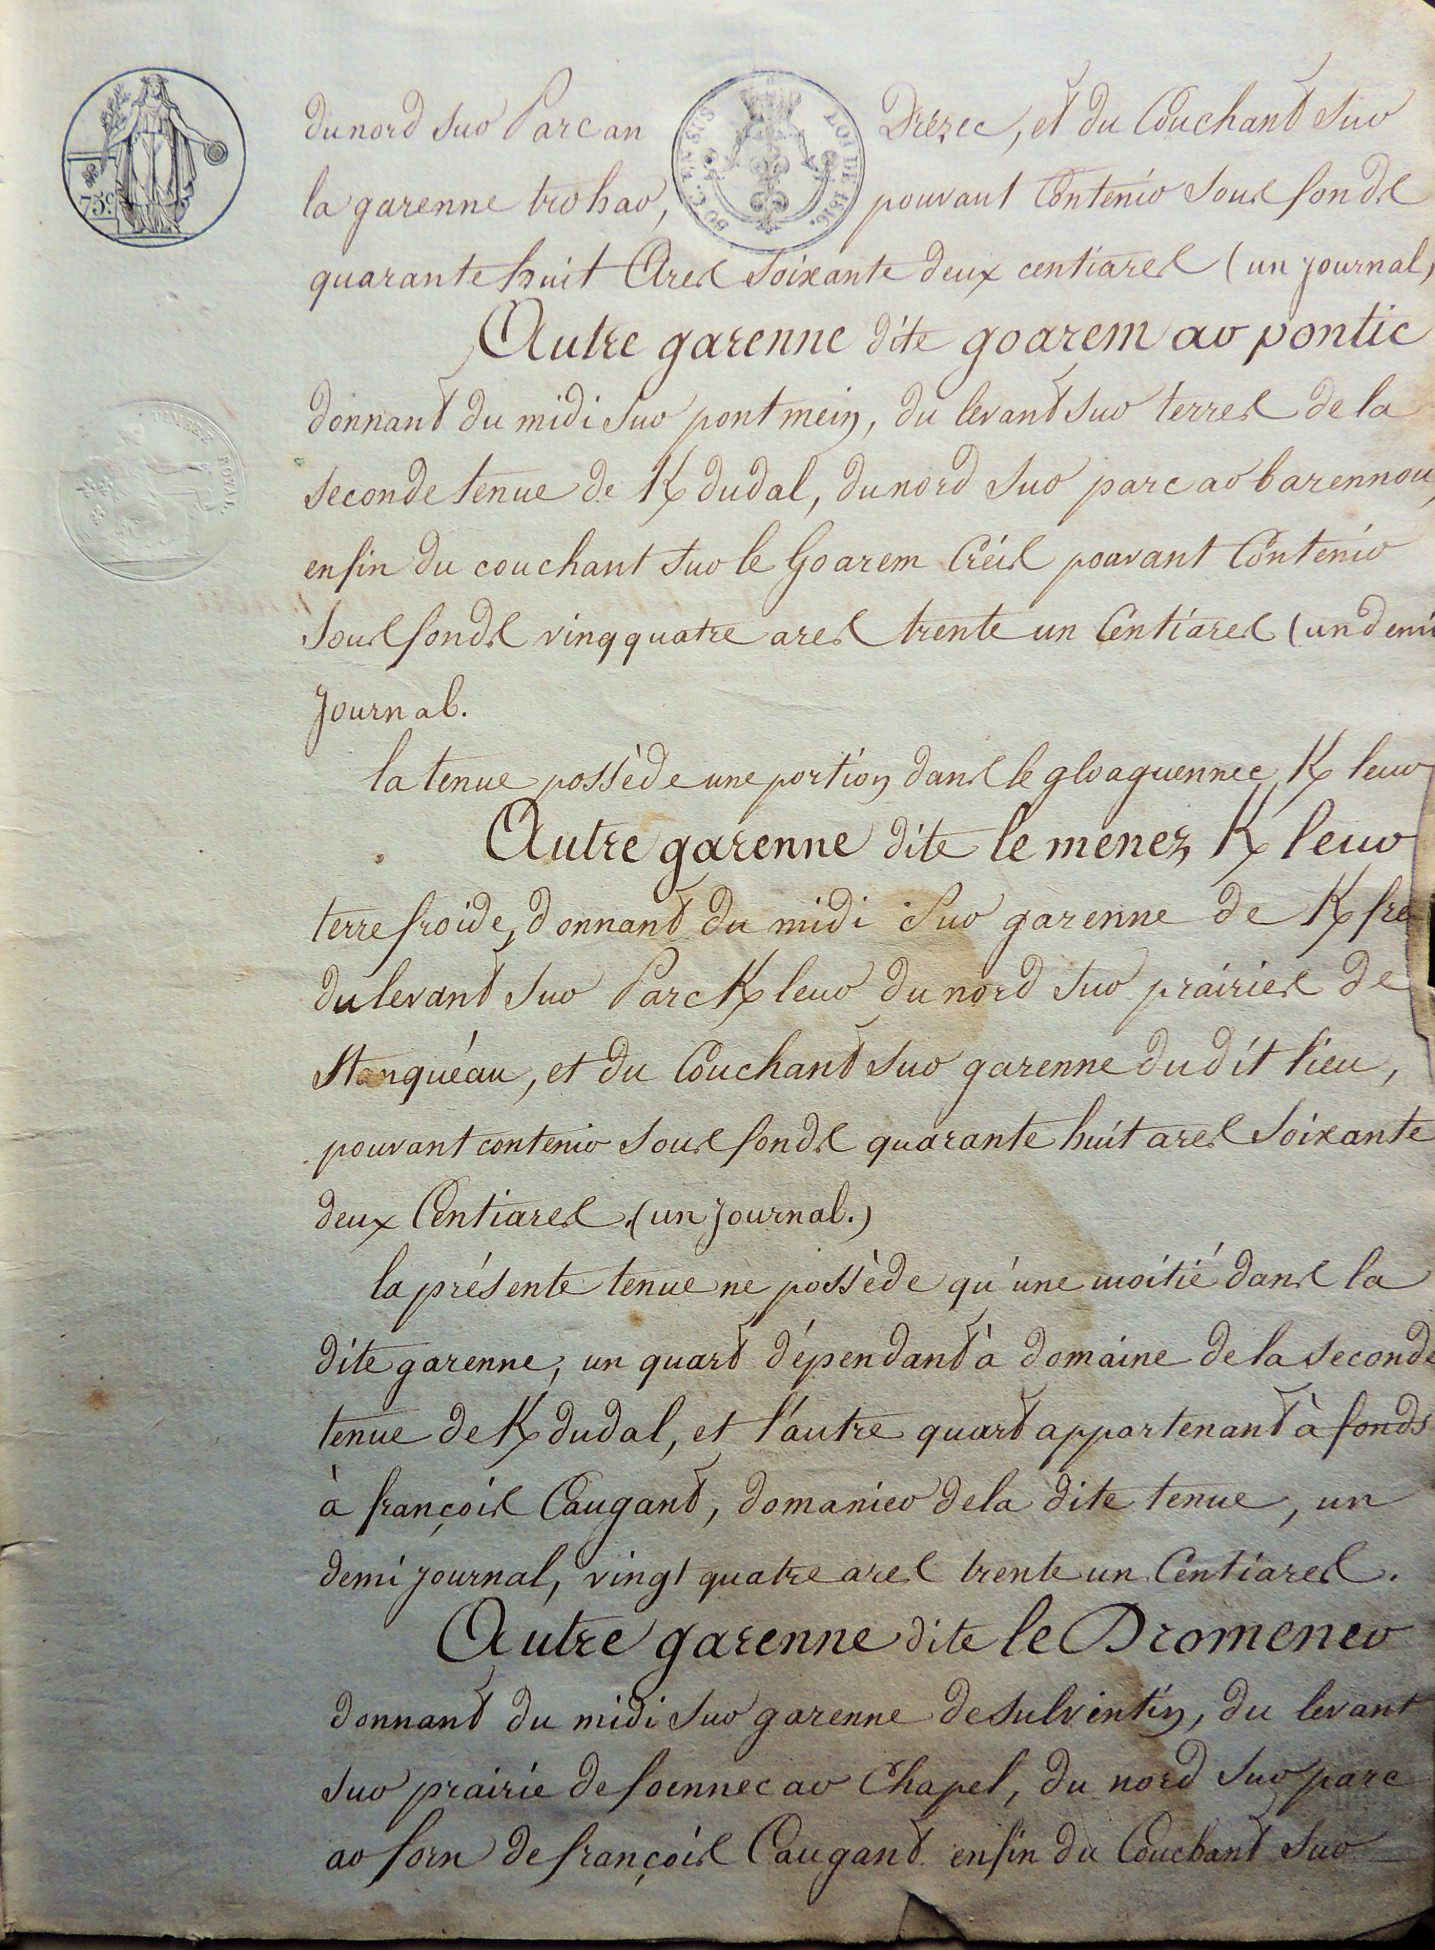 75c.
50 C. EN SUS
LOI DE 1816.
TIMBRE ROYAL
du nord sur Parc an Drezec, et du Couchant sur
la garenne trohar, pouvant Contenir sous fonds
quarante huit Ares soixante deux centiares (un journal)
Autre garenne dite goarem ar pontic
donnant du midi sur pont mein, du levant sur terres de la
seconde tenue de K/dudal, du nord sur parc ar barennou,
enfin du couchant sur le Goarem Creis pouvant Contenir
sous fonds vingquatre ares trente un Centiares (un demi
journal.
la tenue possède une portion dans le gloaguennec K/leur
Autre garenne dite le menez K/leur
terre froide, donnant du midi sur garenne de K/fre
du levant sur Parc K/leur du nord sur prairies de
Stanquéau, et du Couchant sur garenne dudit lieu,
pouvant contenir sous fonds quarante huit ares soixante
deux Centiares. (un journal.)
la présente tenue ne possède qu'une moitié dans la
dite garenne, un quart dépendant à domaine de la seconde
tenue de K/dudal, et l'autre quart appartenant à fonds
à françois Caugant, domanier de la dite tenue, un
demi journal, vingt quatre ares trente un Centiares.
Autre garenne dite le Dromener
donnant du midi sur garenne de sulvintin, du levant
sur prairie de foennec ar Chapel, du nord sur parc
ar forn de françois Caugant enfin du Couchant sur